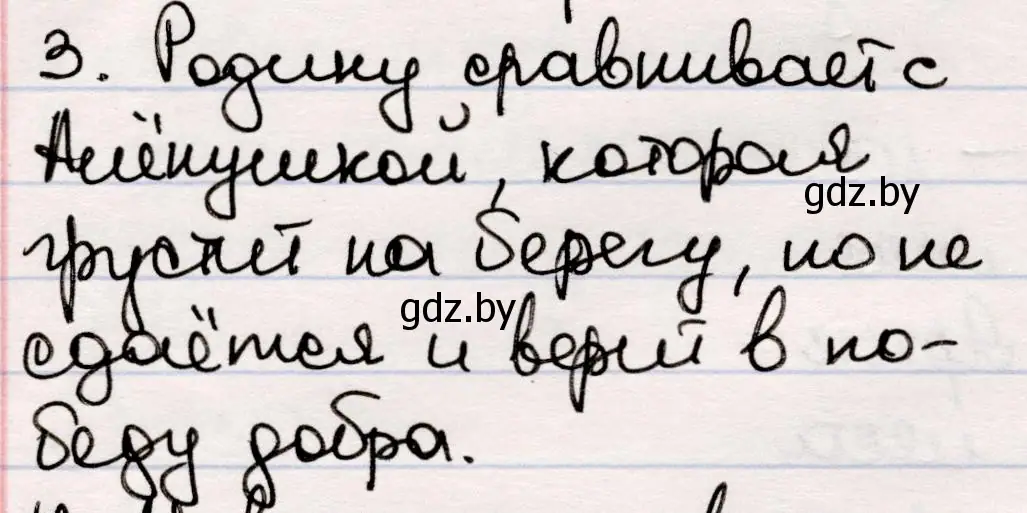 3. Родину сравнивает с
Алёнушкой, которая
gdz.by
грустит на берегу, но не
gdz.by
сдаётся и верит в по-
беду добра.